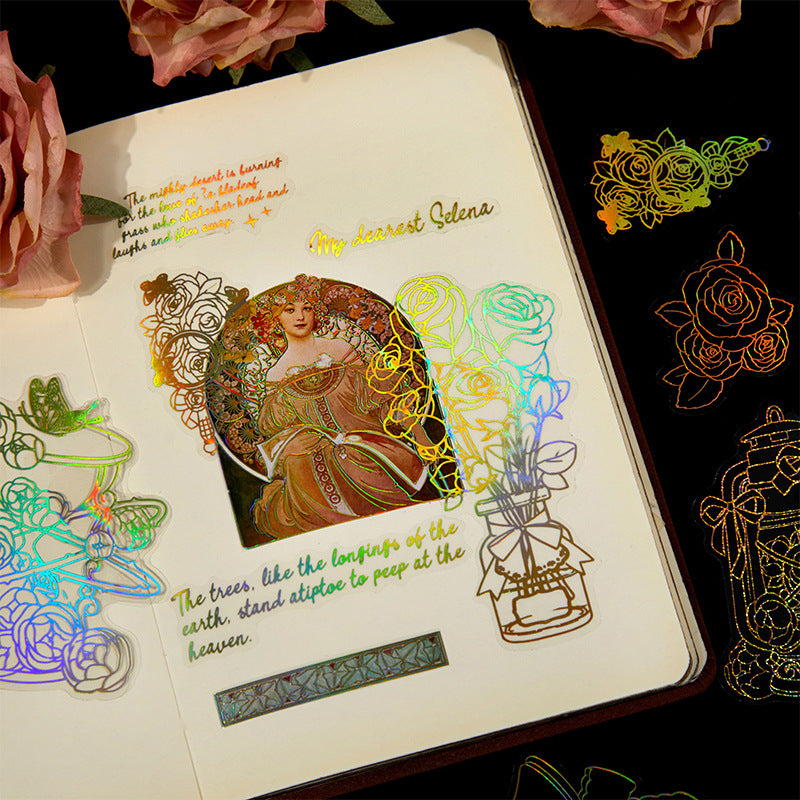 The mighty desert is burning
for the love of ?a bladeof
grass who shakesher head and
laughs and flies away.
My dearest Selena
The trees, like the longings of the
earth, stand atiptoe to peep at the
heaven.